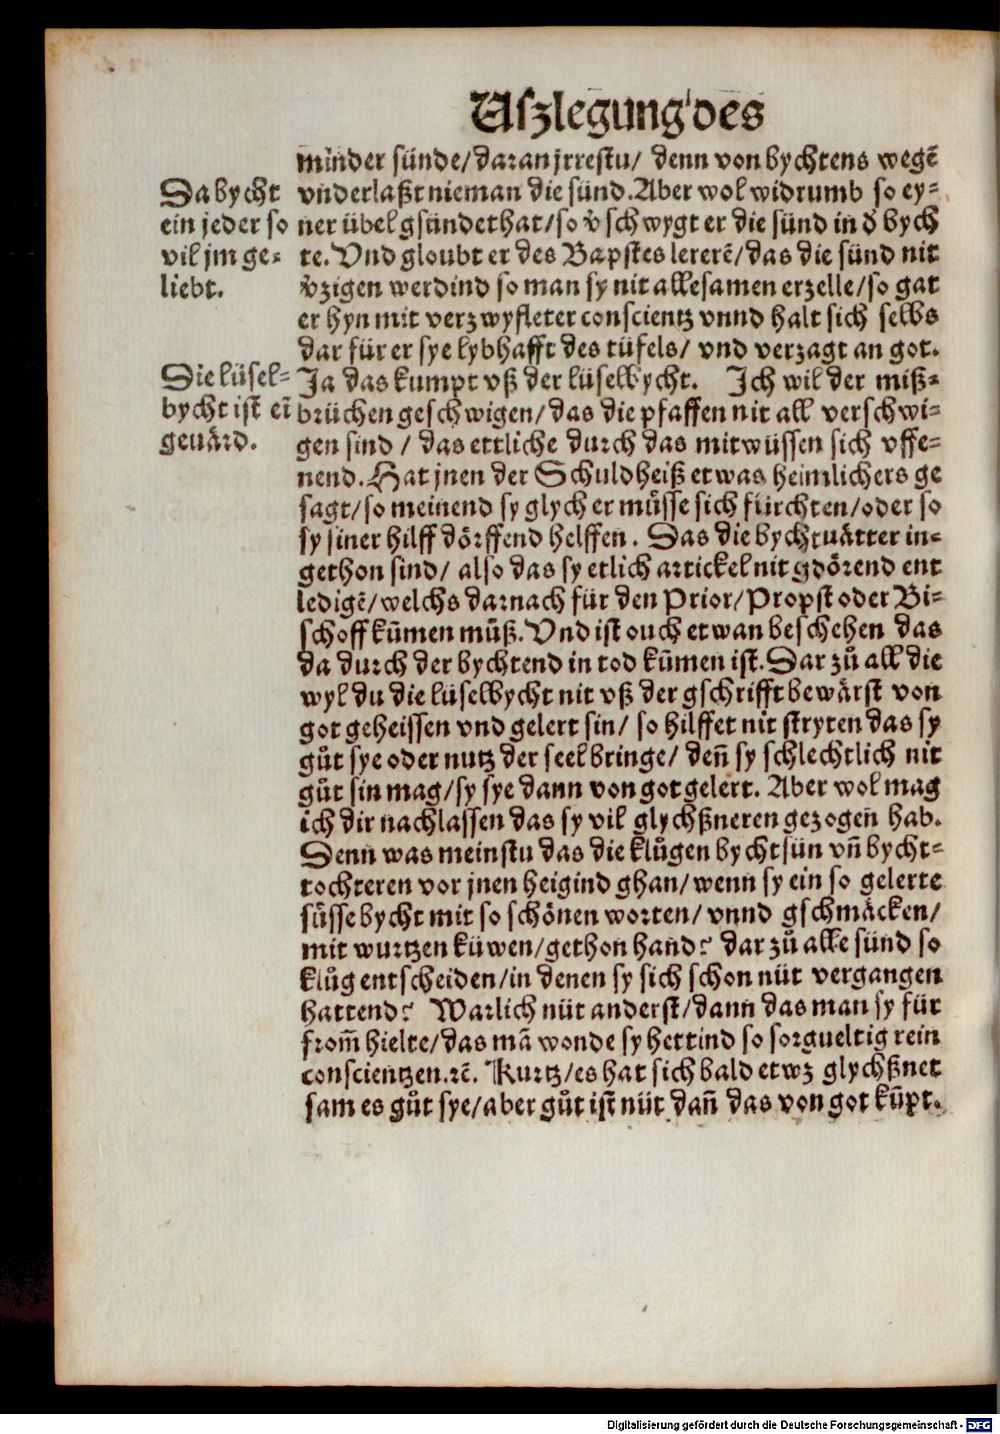 Uſzlegung des
minder sünde/daran jrrestu/ denn von bychtens wegẽ
vnderlaßt nieman die sünd. Aber wol widrumb so ey-
ner übel gsündet hat/so v̊schwygt er die sünd in d̊ bych
te. Vnd gloubt er des Bapstes lererẽ/das die sünd nit
v̊zigen werdind so man sy nit allesamen erzelle/so gat
er hyn mit verzwyfleter conscientz vnnd halt sich selbs
dar für er sye lybhafft des tüfels/ vnd verzagt an got.
Ja das kumpt vß der lüselbycht. Ich wil der miß-
brüchen geschwigen/das die pfaffen nit all verschwi-
gen sind / das ettliche durch das mitwüssen sich vffe-
nend. Hat jnen der Schuldheiß etwas heimlichers ge
sagt/so meinend sy glych er müsse sich fürchten/oder so
sy siner hilff dörffend helffen. Das die bychtuätter in-
gethon sind/ also das sy etlich artickel nit gdörend ent
ledigẽ/welchs darnach für den Prior/Propst oder Bi-
schoff kum̃en müß. Vnd ist ouch etwan beschehen das
da durch der bychtend in tod kum̃en ist. Dar zů all die
wyl du die lüselbycht nit vß der gschrifft bewärst von
got geheissen vnd gelert sin/ so hilffet nit stryten das sy
gůt sye oder nutz der seel bringe/ deñ sy schlechtlich nit
gůt sin mag/sy sye dann von got gelert. Aber wol mag
ich dir nachlassen das sy vil glychßneren gezogen̄ hab.
Denn was meinstu das die klůgen bychtsün vñ bycht-
tochteren vor jnen heigind ghan/wenn sy ein so gelerte
süsse bycht mit so schönen worten/ vnnd gschmäcken/
mit wurtzen küwen/gethon hand? dar zů alle sünd so
klůg entscheiden/in denen sy sich schon nüt vergangen
hattend? Warlich nüt anderst/dann das man sy für
from̃ hielte/das mã wonde sy hettind so sorgueltig rein
conscientzen. ꝛc̃. Kurtz/es hat sich bald etwz glychßnet
sam es gůt sye/aber gůt ist nüt dañ das von got kũpt.
Da bycht
ein jeder so
vil jm ge-
liebt.
Die lüsel-
bycht ist eĩ
geuärd.
Digitalisierung gefördert durch die Deutsche Forschungsgemeinschaft - DFG